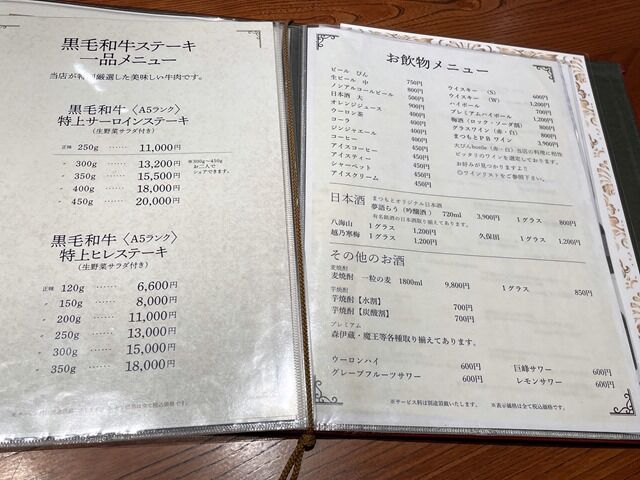 黒毛和牛ステーキ
一品メニュー
当店が特別厳選した美味しい牛肉です。
黒毛和牛〈A5ランク〉
特上サーロインステーキ
(生野菜サラダ付き)
正味 250g …… 11,000円
〃 300g …… 13,200円
〃 350g …… 15,500円
〃 400g …… 18,000円
〃 450g …… 20,000円
※300g〜450g
お二人で
シェアできます。
黒毛和牛〈A5ランク〉
特上ヒレステーキ
(生野菜サラダ付き)
正味 120g …… 6,600円
〃 150g …… 8,000円
〃 200g …… 11,000円
〃 250g …… 13,000円
〃 300g …… 15,000円
〃 350g …… 18,000円
お飲物メニュー
ビール びん 750円
生ビール 中 800円
ノンアルコールビール 500円
日本酒 大 900円
オレンジジュース 400円
ウーロン茶 400円
コーラ 400円
ジンジャエール 400円
コーヒー 450円
アイスコーヒー 450円
アイスティー 450円
シャーベット 450円
アイスクリーム 450円
ウイスキー (S) 600円
ウイスキー (W) 1,200円
ハイボール 700円
プレミアムハイボール 1,200円
梅酒(ロック・ソーダ割) 700円
グラスワイン(赤・白) 800円
まつもとPB ワイン 3,900円
びんbottle(赤・白)当店の料理に相性
ピッタリのワインを選定しております。
お好みが見つかりますよ!!
◎ワインリストをご参照下さい。
日本酒 まつもとオリジナル日本酒
夢語らう(吟醸酒) 720ml 3,900円 1グラス 800円
有名銘酒の日本酒取り揃えてあります。
八海山 1グラス 1,200円 久保田 1グラス 1,200円
越乃寒梅 1グラス 1,200円
その他のお酒
麦焼酎
麦焼酎 一粒の麦 1800ml 9,800円 1グラス 850円
芋焼酎
芋焼酎【水割】 700円
芋焼酎【炭酸割】 700円
プレミアム
森伊蔵・魔王等各種取り揃えてあります。
ウーロンハイ 600円 巨峰サワー 600円
グレープフルーツサワー 600円 レモンサワー 600円
※サービス料は別途頂戴いたします。 ※表示価格は全て税込価格です。